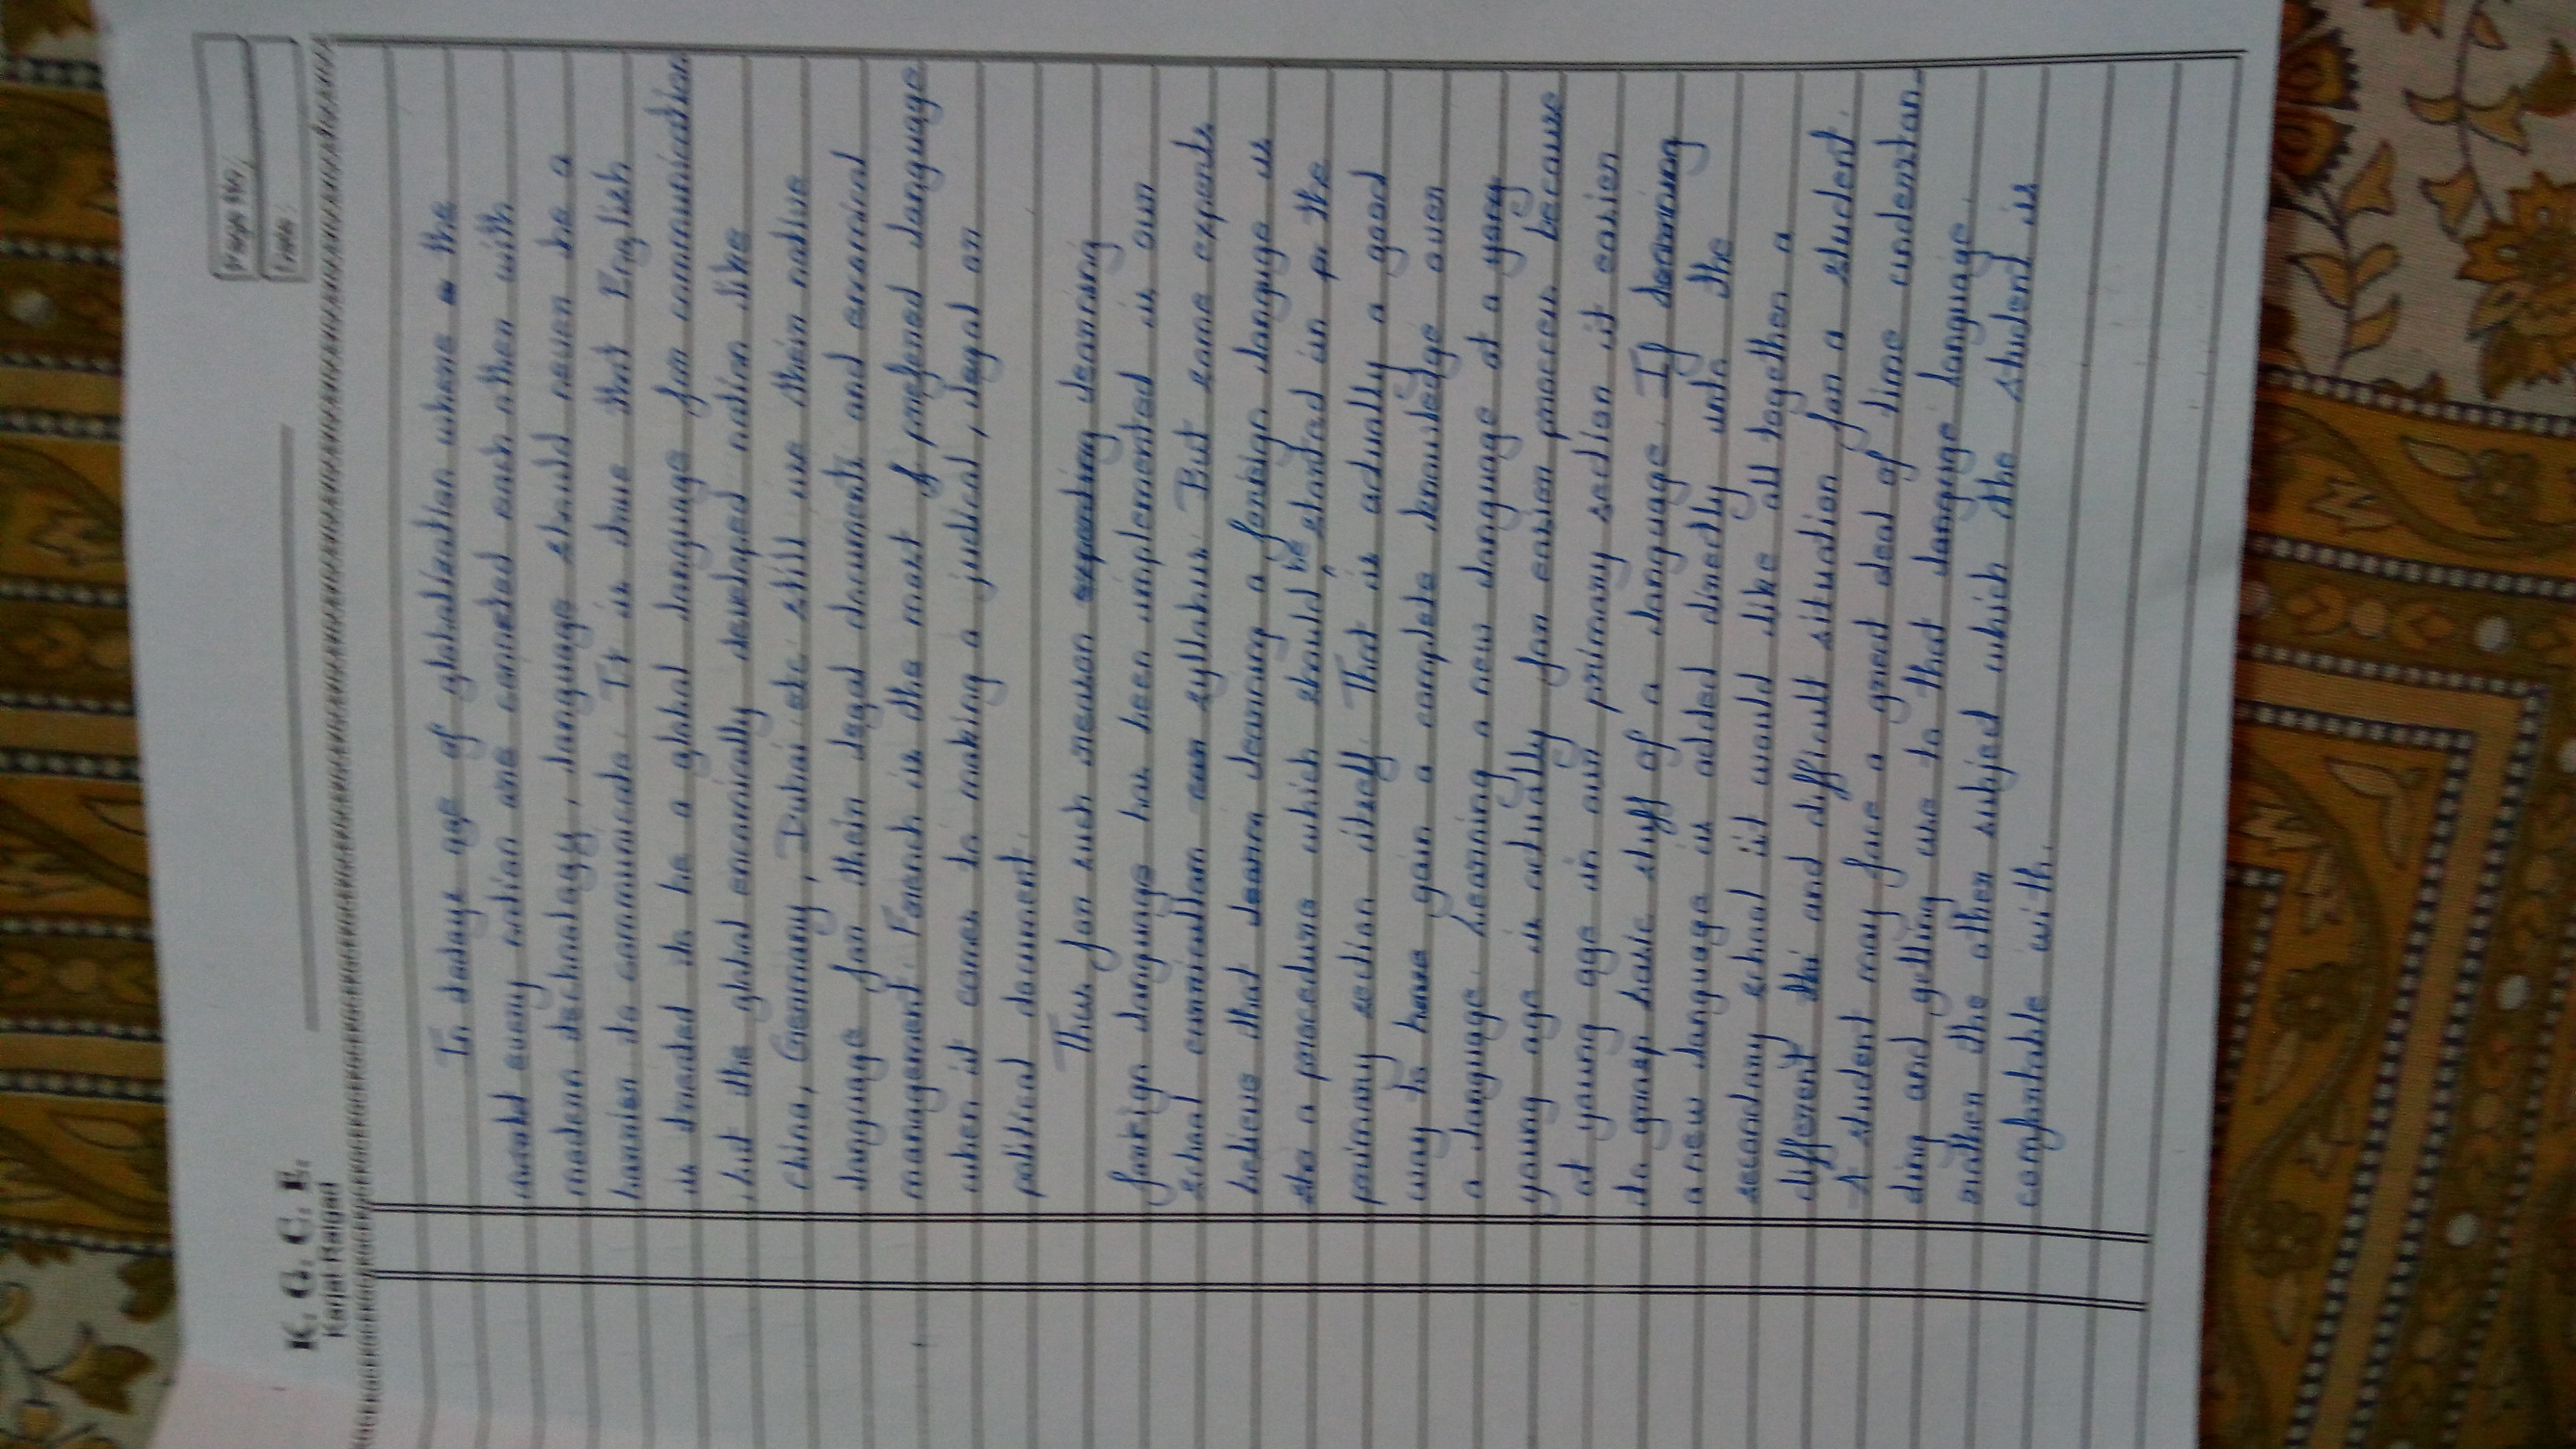 K. G. C. E.
Karjat-Raigad
Page No.
Date:
In todays age of globalization where a the
world every nation are conneted each other with
modern technology, language should never be a
barrier to communicate. It is true that English
is treated to be a global language for communication
but the global economically developed nation like
china, Germany, Dubai etc. still use their native
language for their legal documents and ecnomical
management. French is the most of preferred language
when it comes to making a judical, legal or
political document.
Thus for such reason learning
foreign language has been implemented in our
school curricullum syllabus. But some experts
believe that learning a foriegn language is
a procedure which should be started in the
primary section itself. That is actually a good
way to gain a complete knowledge over
a language. Learning a new language at a
young age is actually far easier process because
at young age in our primary section it easier
to grasp basic stuff of a language. If learning
a new language is added directly into the
secondary school it would like all together a
different and difficult situation for a student.
A student may face a great deal of time understan-
ding and getting use to that language
rather the other subject which the student is
comfortable with.